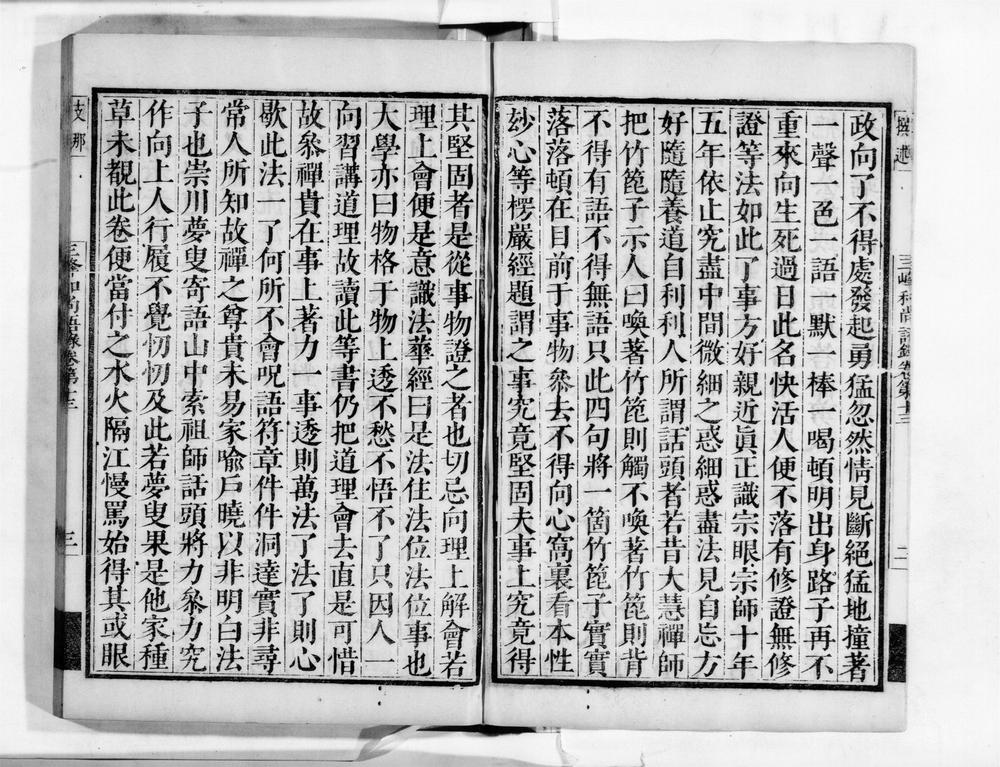 政向了不得處發起勇猛忽然情見斷絕猛地撞著
一聲一色一語一默一棒一喝頓明出身路子再不
重來向生死過日此名快活人便不落有修證無修
證等法如此了事方好親近眞正識宗眼宗師十年
五年依止究盡中間微細之惑細惑盡法見自忘方
好隨隨養道自利利人所謂話頭者若昔大慧禪師
把竹箆子示人曰喚著竹箆則觸不喚著竹箆則背
不得有語不得無語只此四句將一箇竹箆子實實
落落頓在目前于事物叅去不得向心窩裏看本性
玅心等楞嚴經題謂之事究竟堅固夫事上究竟得
三峰和尚語錄卷第十三
二
其堅固者是從事物證之者也切忌向理上解會若
理上會便是意識法華經曰是法住法位法位事也
大學亦曰物格于物上透不愁不悟不了只因人一
向習講道理故讀此等書仍把道理會去直是可惜
故叅禪貴在事上著力一事透則萬法了法了則心
歇此法一了何所不會呪語符章件件洞達實非尋
常人所知故禪之尊貴未易家喻戶曉以非明白法
子也崇川夢叟寄語山中索祖師話頭將力叅力究
作向上人行履不覺忉忉及此若夢叟果是他家種
草未覩此卷便當付之水火隔江慢罵始得其或眼
支那
三峰和尚語錄卷第十三
三